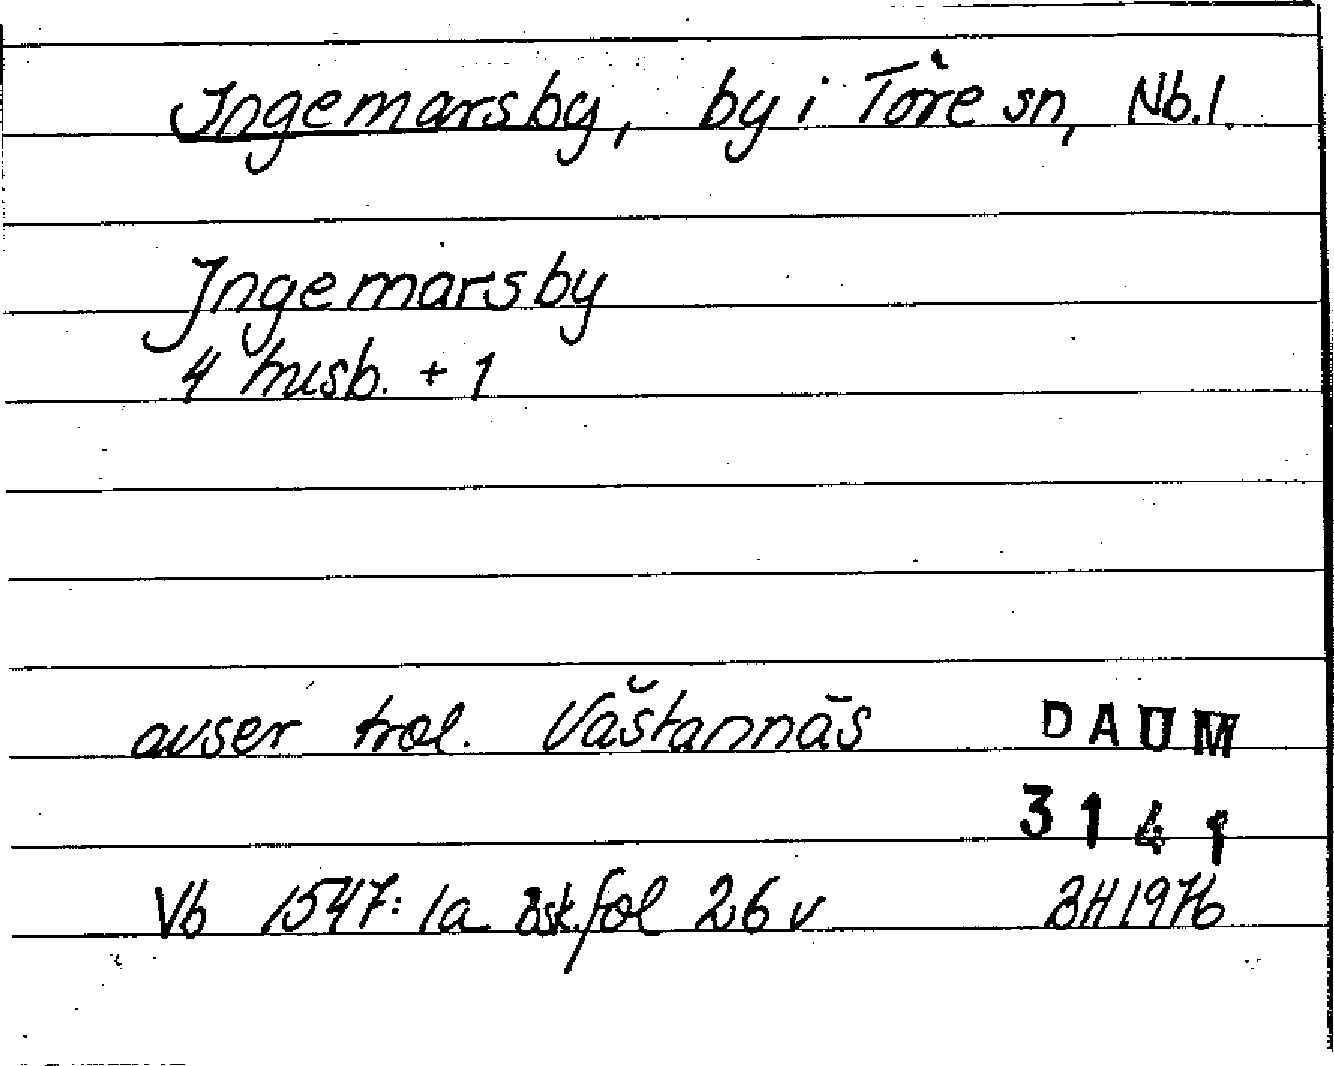 Ingemarsby, by i Töre sn, Nb. l.
Ingemarsby
4 husb. + 1
avser trol. Västannäs
DAUM
3141
Vb 1547: 1a Bsk. fol 26 v BH 1976